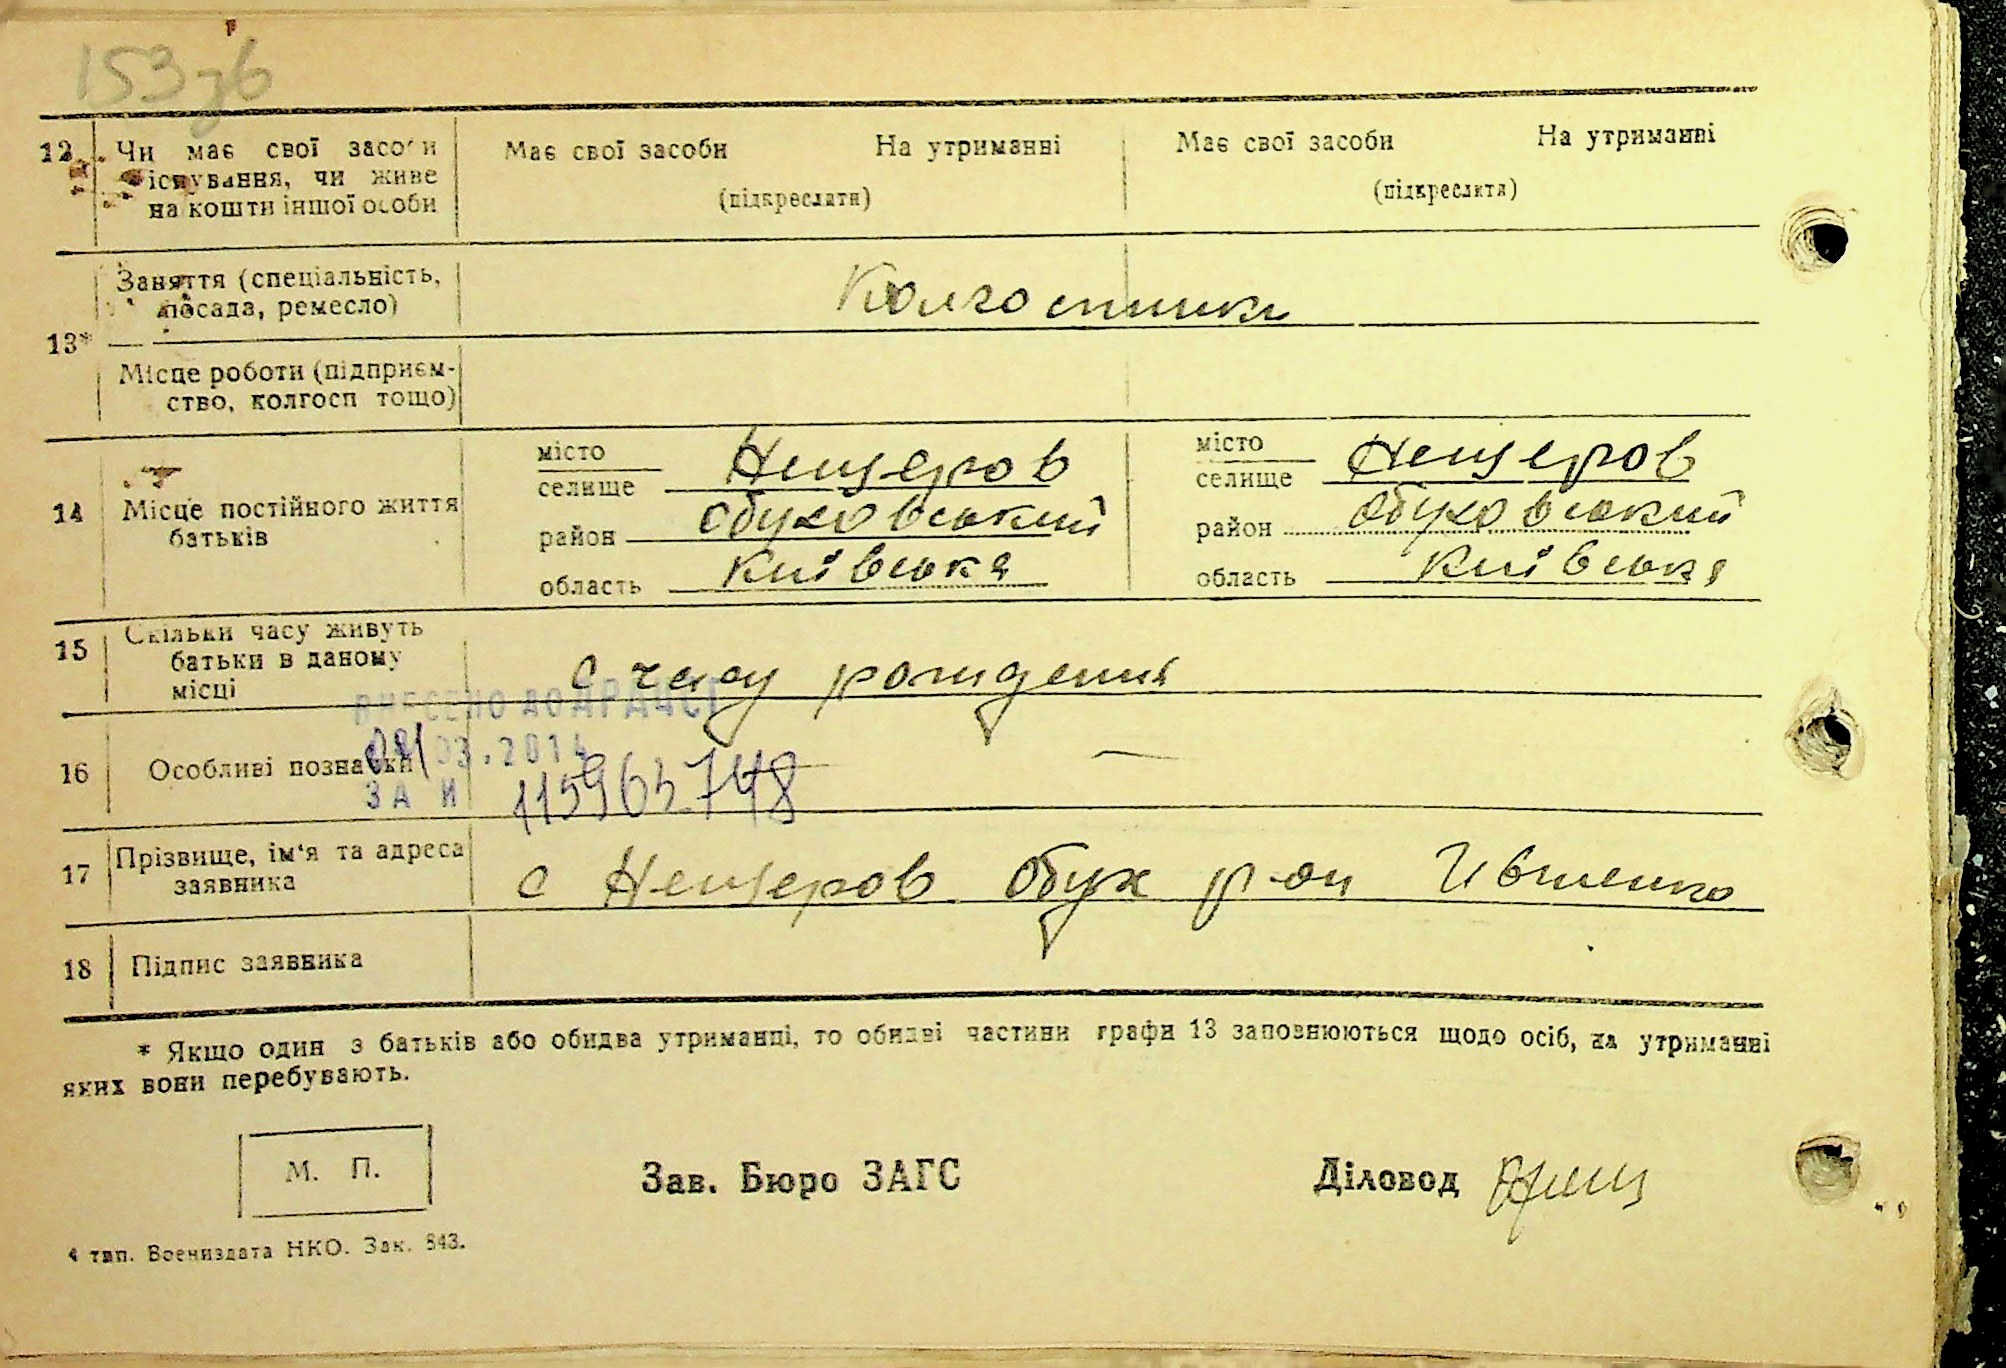 153зв
12 Чи має свої засоби Має свої засоби На утриманні Має свої засоби На утриманні
існування, чи живе (підкреслити) (підкреслити)
на кошти іншої особи
Заняття (спеціальність, Колгоспники
посада, ремесло)
13*
Місце роботи (підприєм-
ство, колгосп тощо)
місто місто
селище Нещеров селище Нещеров
14 Місце постійного життя район Обуховський район Обуховський
батьків
область Київська область Київська
15 Скільки часу живуть
батьки в даному С часу рождения
місці
ВНЕСЕНО ДО ДРАЦСГ
16 Особливі познаčки 03.2014 —
ЗА №
17 Прізвище, ім'я та адреса с Нещеров Обух р-он Ившенко
заявника
18 Підпис заявника
* Якщо один з батьків або обидва утриманці, то обидві частини графи 13 заповнюються щодо осіб, на утриманні
яких вони перебувають.
М. П. Зав. Бюро ЗАГС Діловод
4 тип. Воениздата НКО. Зак. 843.